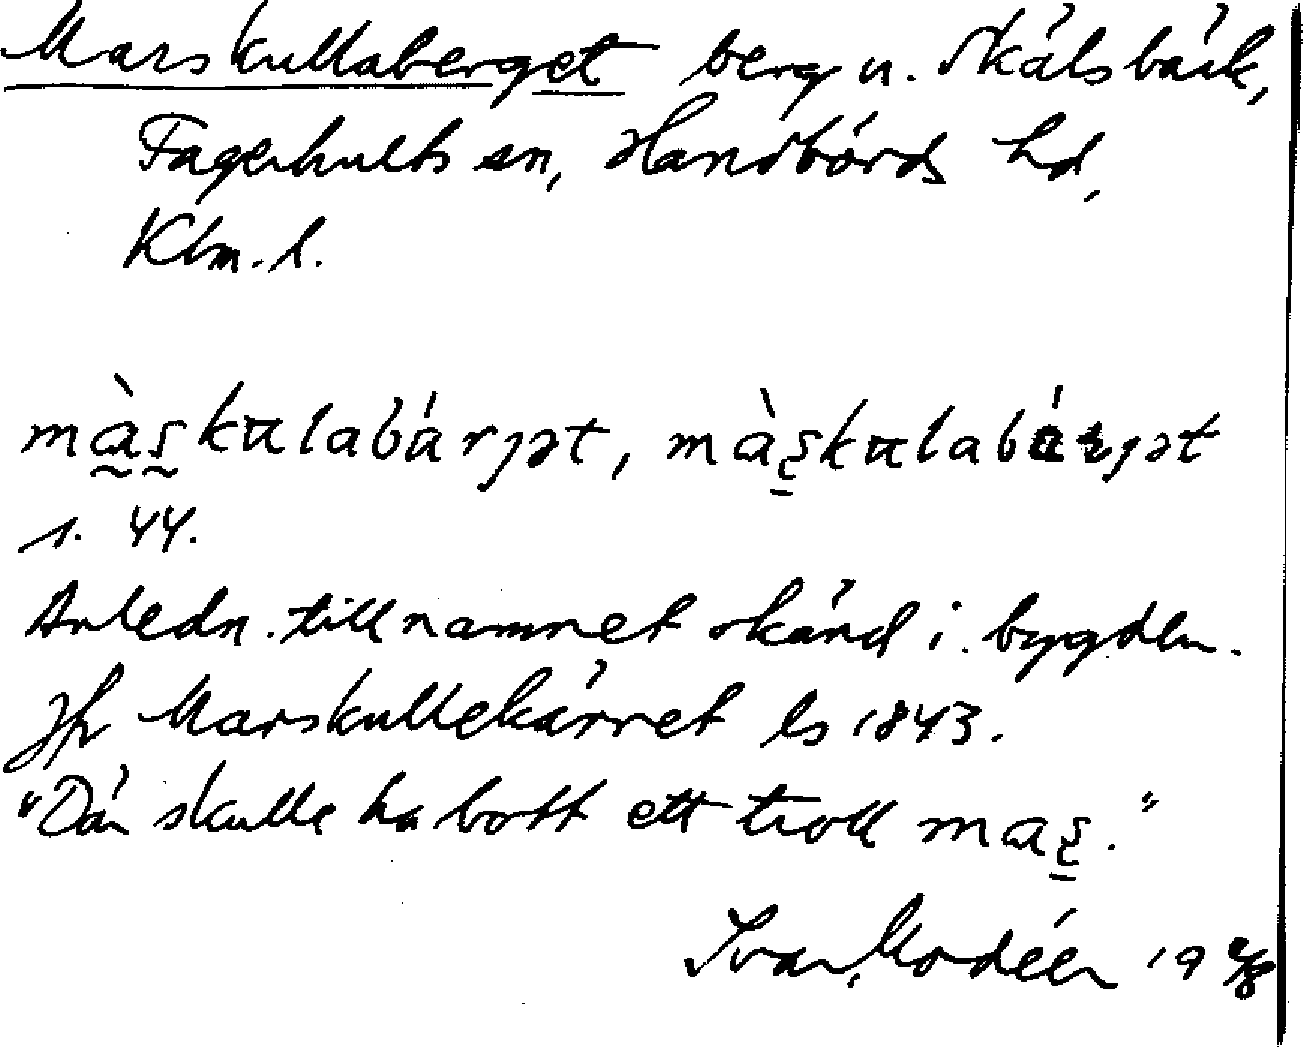 Marskullaberget berg n. Skälsbäck,
Fagerhults sn, Handbörds hd,
Klm. l.
màʂkulabárjət, màʂkulabárjət
s. 44.
Anledn. till namnet okänd i bygden.
Jfr Marskullekärret ls 1843.
"Där skulle ha bott ett troll maʂ."
Ivar Modéer 19